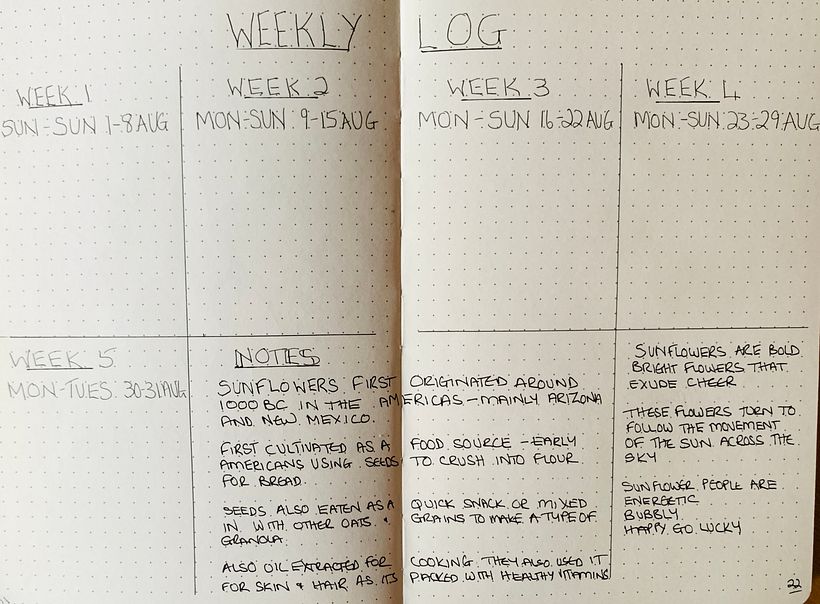 WEEKLY LOG
WEEK 1
SUN-SUN 1-8 AUG
WEEK 2
MON-SUN 9-15 AUG
WEEK 3
MON-SUN 16-22 AUG
WEEK 4
MON-SUN 23-29 AUG
WEEK 5
MON-TUES 30-31 AUG
NOTES
SUNFLOWERS FIRST ORIGINATED AROUND
1000 BC IN THE AMERICAS - MAINLY ARIZONA
AND NEW MEXICO.
FIRST CULTIVATED AS A FOOD SOURCE - EARLY
AMERICANS USING SEEDS TO CRUSH INTO FLOUR
FOR BREAD.
SEEDS ALSO EATEN AS A QUICK SNACK OR MIXED
IN WITH OTHER OATS & GRAINS TO MAKE A TYPE OF
GRANOLA.
ALSO OIL EXTRACTED FOR COOKING. THEY ALSO USED IT
FOR SKIN & HAIR AS ITS PACKED WITH HEALTHY VITAMINS
SUNFLOWERS ARE BOLD
BRIGHT FLOWERS THAT
EXUDE CHEER
THESE FLOWERS TURN TO
FOLLOW THE MOVEMENT
OF THE SUN ACROSS THE
SKY
SUNFLOWER PEOPLE ARE
ENERGETIC
BUBBLY
HAPPY GO LUCKY
22